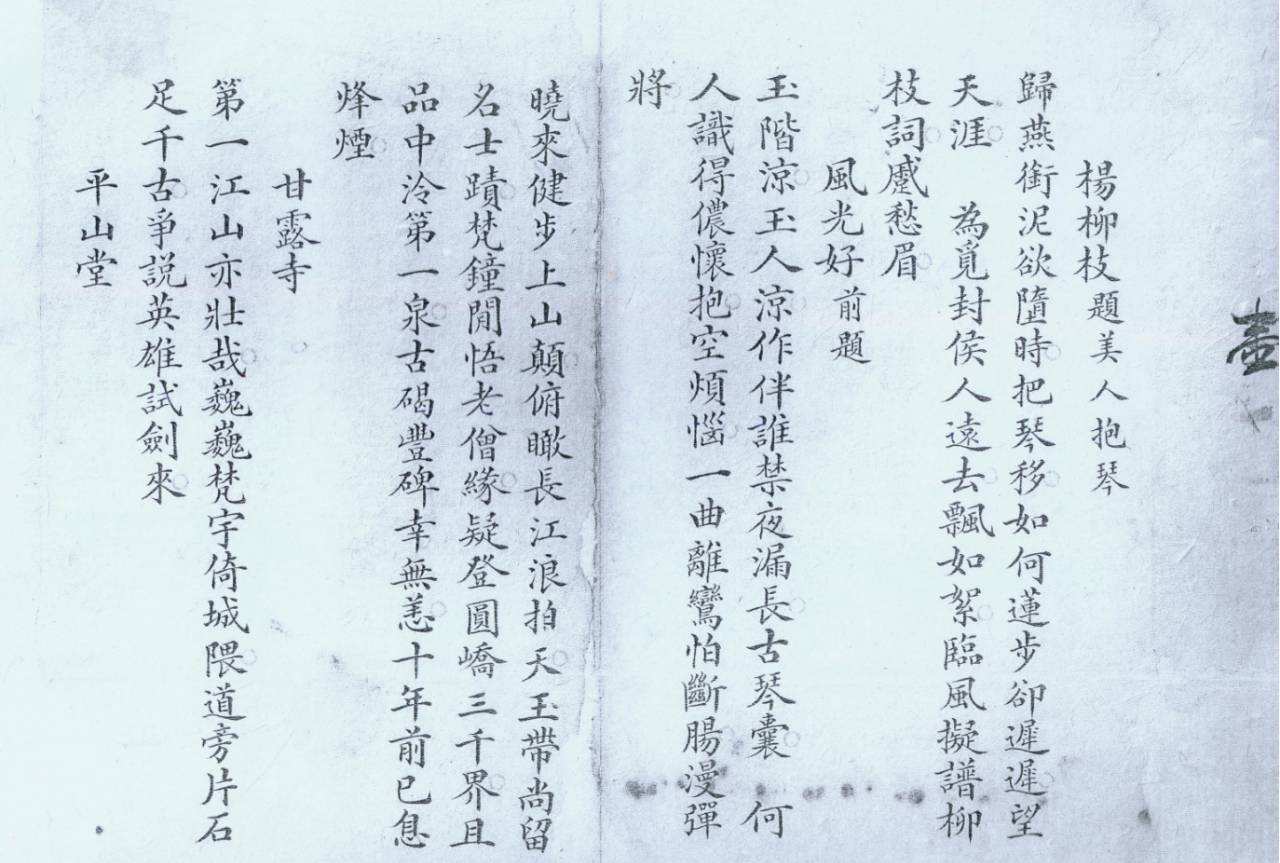 壺
楊柳枝 題美人抱琴
歸燕銜泥欲墮時把琴移如何蓮步卻遲遲望
天涯　為覓封侯人遠去飄如絮臨風擬譜柳
枝詞蹙愁眉
風光好 前題
玉階涼玉人涼作伴誰禁夜漏長古琴囊　何
人識得儂懷抱空煩惱一曲離鸞怕斷腸漫彈
將
曉來健步上山顛俯瞰長江浪拍天玉帶尚留
名士蹟梵鐘閒悟老僧緣疑登圓嶠三千界且
品中泠第一泉古碣豐碑幸無恙十年前已息
烽煙
甘露寺
第一江山亦壯哉巍巍梵宇倚城隈道旁片石
足千古爭說英雄試劍來
平山堂